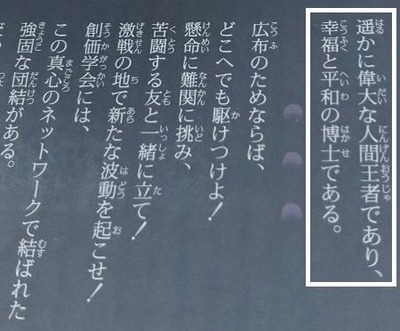 遥かに偉大な人間王者であり、
幸福と平和の博士である。
広布のためならば、
どこへでも駆けつけよ！
懸命に難関に挑み、
苦闘する友と一緒に立て！
激戦の地で新たな波動を起こせ！
創価学会には、
この真心のネットワークで結ばれた
強固な団結がある。